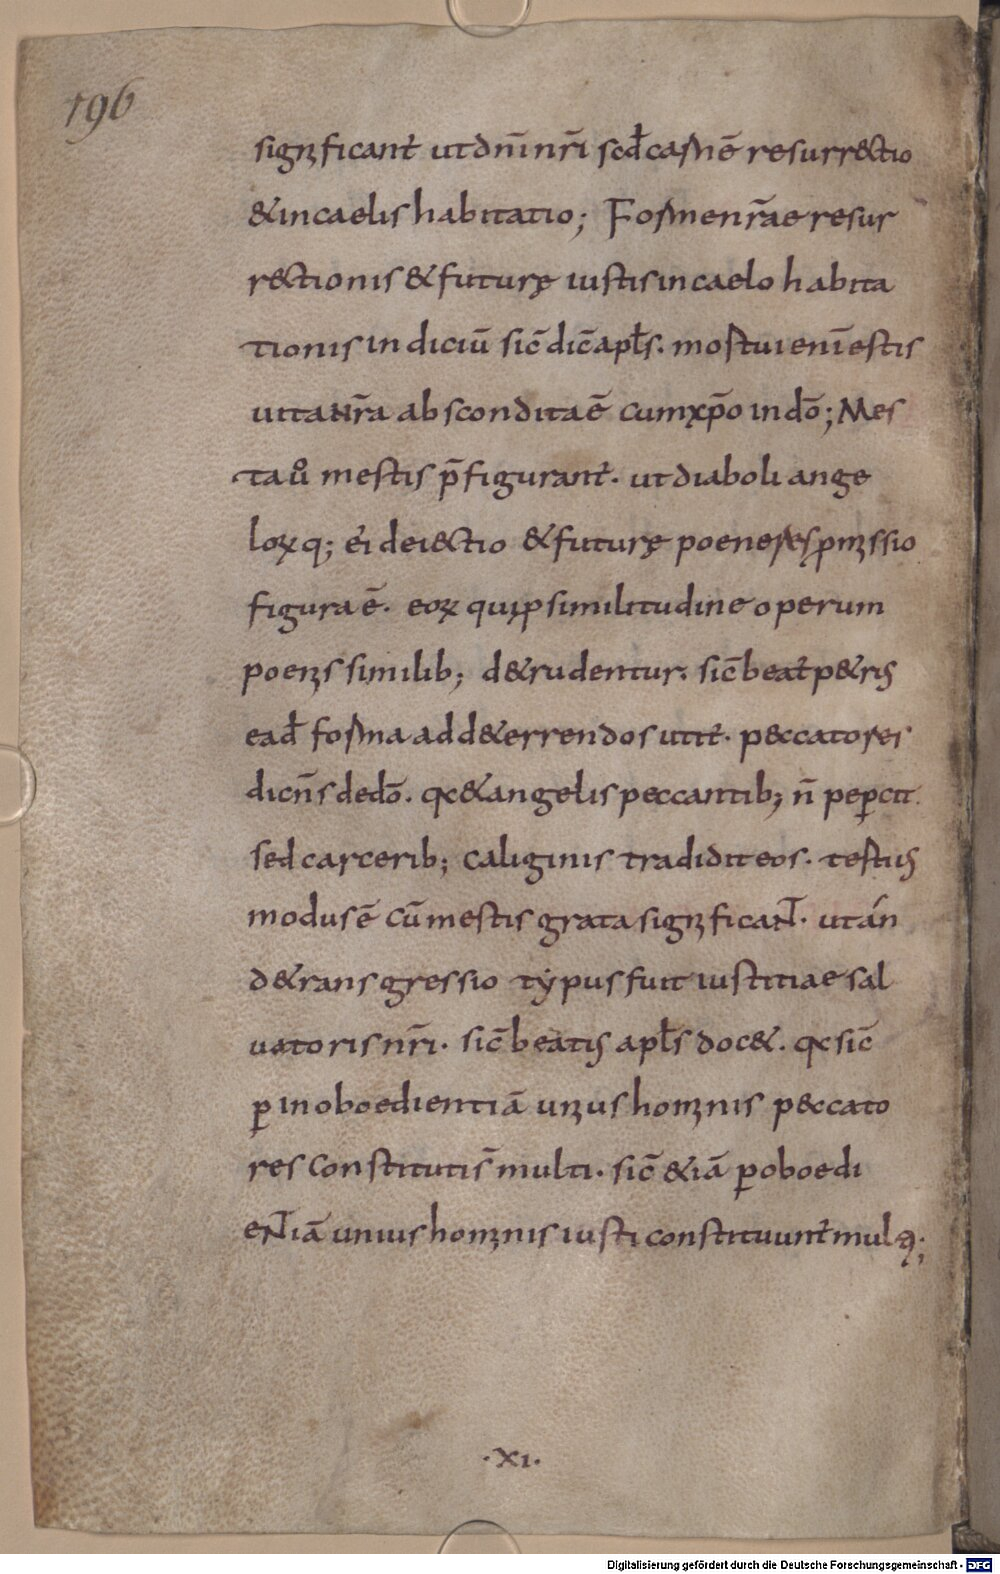 196
significant̄ ut dn̄i nr̄i scd̄ carnē resurrectio
& in caelis habitatio; Formę nr̄ae resur
rectionis & futurę iustis in caelo habita
tionis indiciū sic̄ dic̄ apl̄s. mortui enī estis
uita nr̄a abscondita ē cum xp̄o in dō; Mes
ta ū mestis p̄figurant̄. ut diaboli ange
loꝝq; ei deiectio & futurę poene
figura ē. eoꝝ qui ꝑ similitudine operum
poenis similib; d&rudentur. sic̄ beat̄ p&rus
ead̄ forma ad d&errendos utit̄. peccatores
dicn̄s de dō. qđ & angelis peccantib; n̄ peꝑcit
sed carcerib; caliginis tradidit eos. tertius
modus ē cū mestis grata significaNT. ut án
d& rans gressio typus fuit iustitiae sal
uatoris nr̄i. sic̄ beatus apl̄s doc&. qđ sic̄
ꝑ inoboedientiā unius hominis peccato
res constituti s̄ multi. sic̄ & iā ꝑ oboedi
eNTiā unius hominis iusti constituunt̄ multi;
·XI·
Digitalisierung gefördert durch die Deutsche Forschungsgemeinschaft - DFG